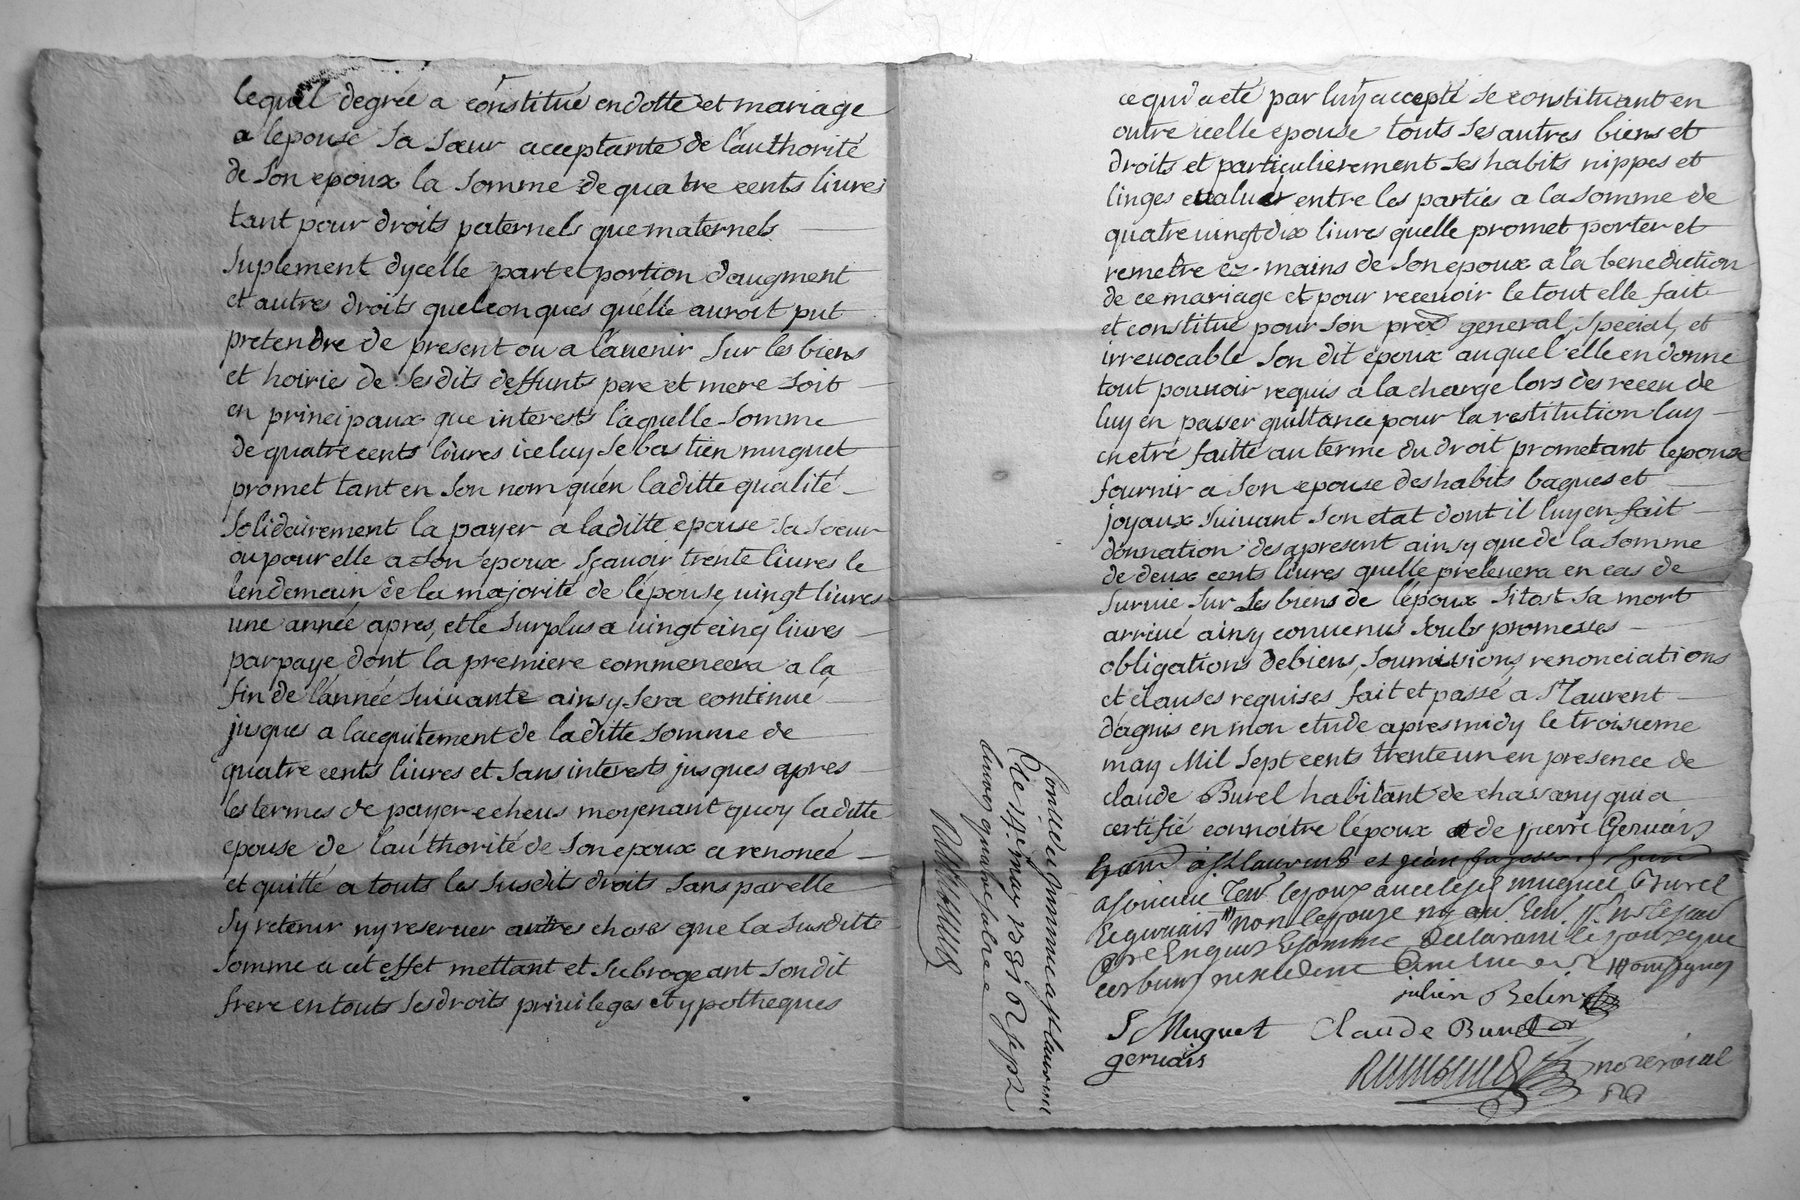 lequel degrée a constitué en dotte et mariage
a lepouse sa sœur acceptante de lauthorité
de son epoux la somme de quatre cents livres
tant pour droits paternels que maternels
suplement dycelle part et portion daugment
et autres droits quelconques quelle auroit put
pretendre de present ou a lavenir sur les biens
et hoiries de sesdits deffunts pere et mere soit
en principaux que interests laquelle somme
de quatre cents livres iceluy sebastien muguet
promet tant en son nom quen laditte qualité
solidairement la payer a laditte epouse sa sœur
ou pour elle a son epoux sçavoir trente livres le
lendemain de la majorité de lépouse, vingt livres
une année apres, et le surplus a vingt cinq livres
par paye dont la premiere commencera a la
fin de lannée suivante ainsy sera continué
jusques a lacquitement de laditte somme de
quatre cents livres et sans interests jusques apres
les termes de payer echeus moyenant quoy laditte
epouse de lauthorité de son epoux a renoncé
et quitté a touts les susdits droits sans par elle
sy retenir ny reserver autres choses que la susditte
somme a cet effet mettant et subrogeant sondit
frere en touts ses droits privileges et ypotheques
ce qui a eté par luy accepté se constituant en
outre icelle epouse touts ses autres biens et
droits et particulierement ses habits nippes et
linges evalués entre les parties a la somme de
quatre vingt dix livres quelle promet porter et
remetre ez mains de son epoux a la benediction
de ce mariage et pour recevoir le tout elle fait
et constitue pour son pror general, special, et
irrevocable son dit epoux auquel elle en donne
tout pouvoir requis a la charge lors des receu de
luy en passer quittance pour la restitution luy
en etre faitte au terme du droit prometant lepoux
fournir a son epouse des habits bagues et
joyaux suivant son etat dont il luy en fait
donnation des apresent ainsy que de la somme
de deux cents livres quelle prelevera en cas de
survie sur les biens de lépoux sitost sa mort
arrivé ainsy convenus soubs promesses
obligations de biens, soumissions, renonciations
et clauses requises fait et passé a St laurent
dagnis en mon etude apres midy le troisieme
may Mil sept cents trente un en presence de
claude Burel habitant de chassany qui a
certifié connoitre lépoux et de pierre Gervais
a St laurent et jean
lepoux avec muguet Burel
et gervais non lepouse ny
enquis et sommé declarant lepoux
julien Belin
S Muguet Claude Burel
gervais
no.re royal
Controllé a St laurent
le 14 may 1731